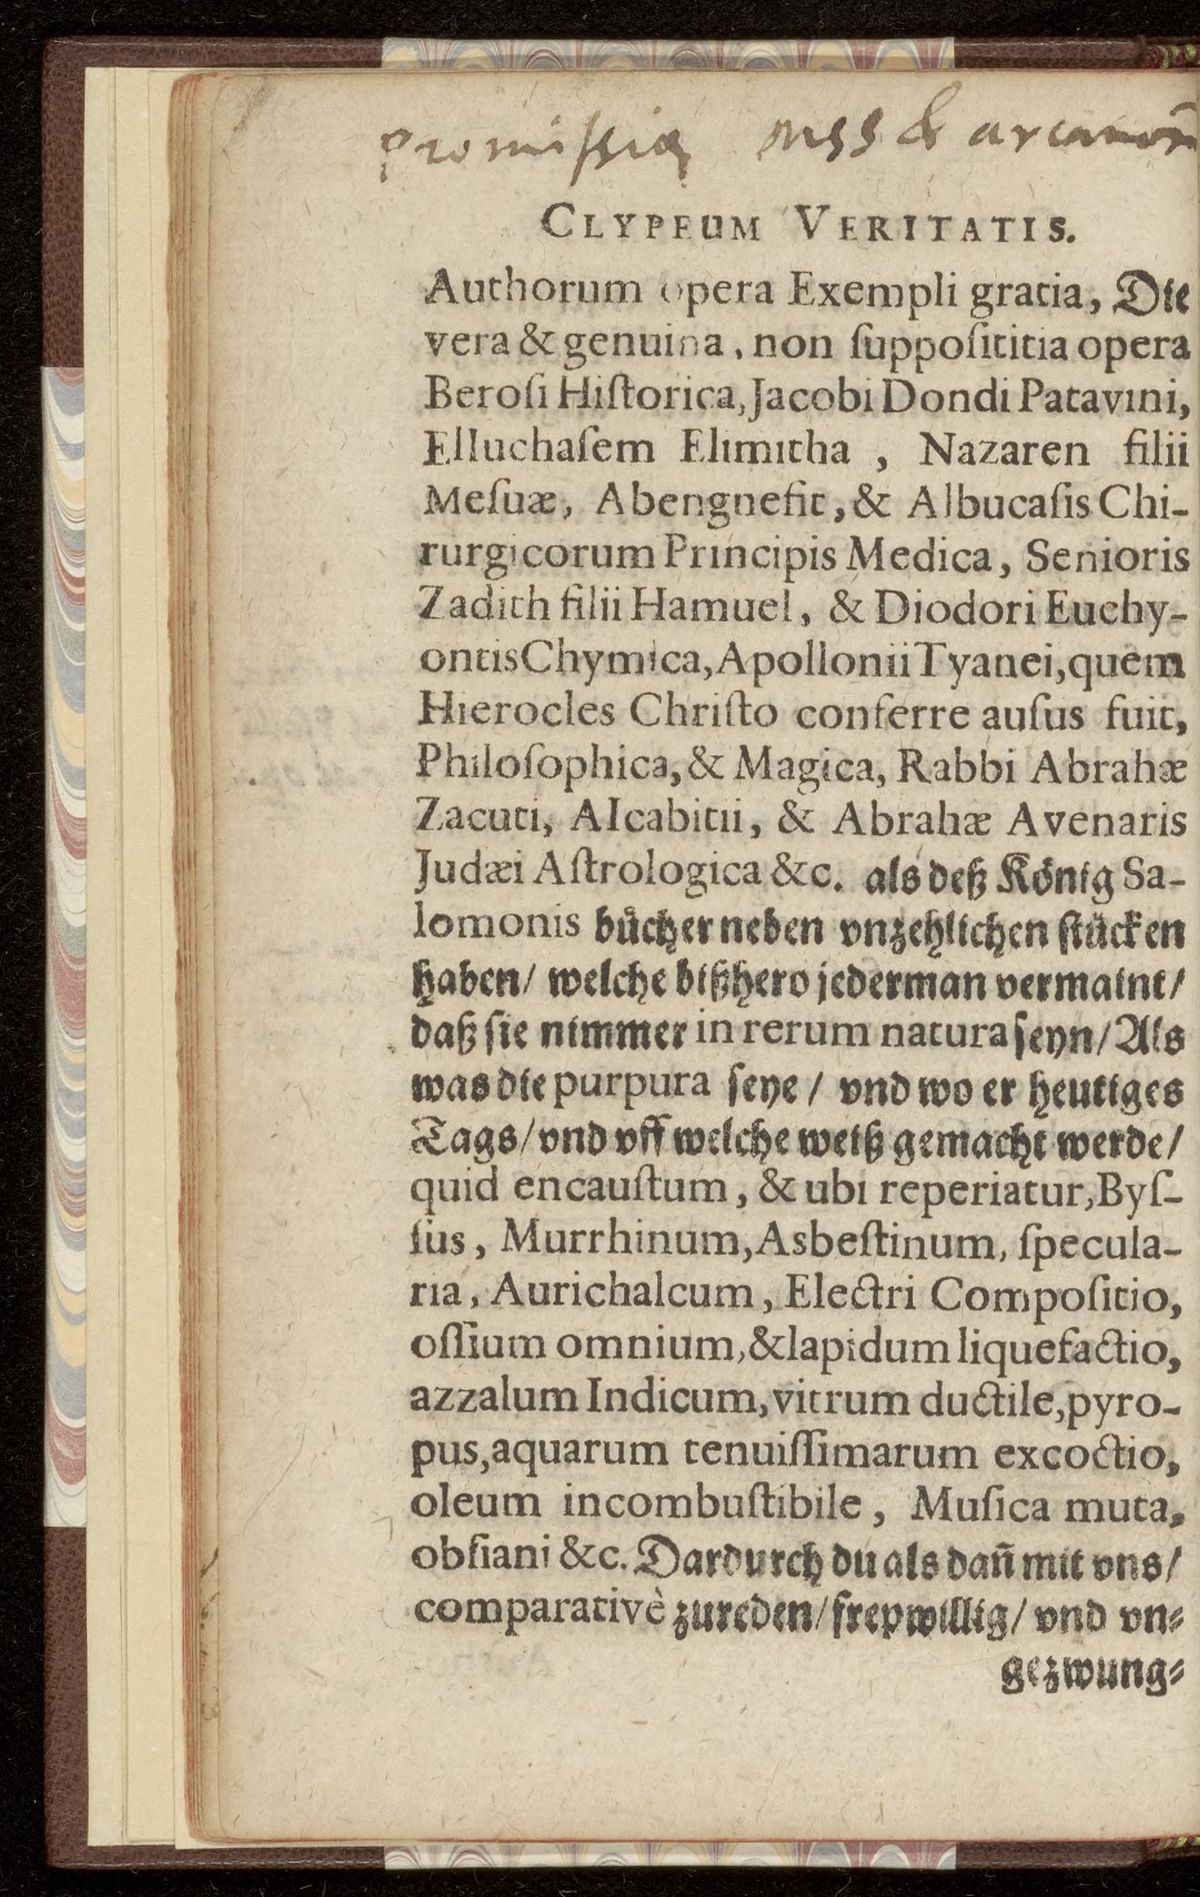 promissio MSS & arcanorũ
CLYPEUM VERITATIS.
Authorum opera Exempli gratia, Die
vera & genuina, non ſuppoſititia opera
Beroſi Hiſtorica, Jacobi Dondi Patavini,
Elluchaſem Elimitha , Nazaren filii
Meſuæ, Abengnefit, & Albucaſis Chi-
rurgicorum Principis Medica, Senioris
Zadith filii Hamuel, & Diodori Euchy-
ontis Chymica, Apollonii Tyanei, quem
Hierocles Chriſto conferre auſus fuit,
Philoſophica, & Magica, Rabbi Abrahæ
Zacuti, AIcabitii, & Abrahæ Avenaris
Judæi Aſtrologica &c. als deß König Sa-
lomonis buͤcher neben vnzehlichen ſtuͤcken
haben/ welche bißhero jederman vermaint/
daß ſie nimmer in rerum natura ſeyn/ Als
was die purpura ſeye / vnd wo er heutiges
Tags/ vnd vff welche weiß gemacht werde/
quid encauſtum, & ubi reperiatur, Byſ-
ſus, Murrhinum, Asbeſtinum, ſpecula-
ria, Aurichalcum, Electri Compoſitio,
oſſium omnium, & lapidum liquefactio,
azzalum Indicum, vitrum ductile, pyro-
pus, aquarum tenuiſſimarum excoctio,
oleum incombuſtibile, Muſica muta,
obſiani &c. Dardurch du als dañ mit vns/
comparativè zureden/ freywillig/ vnd vn-
gezwung-